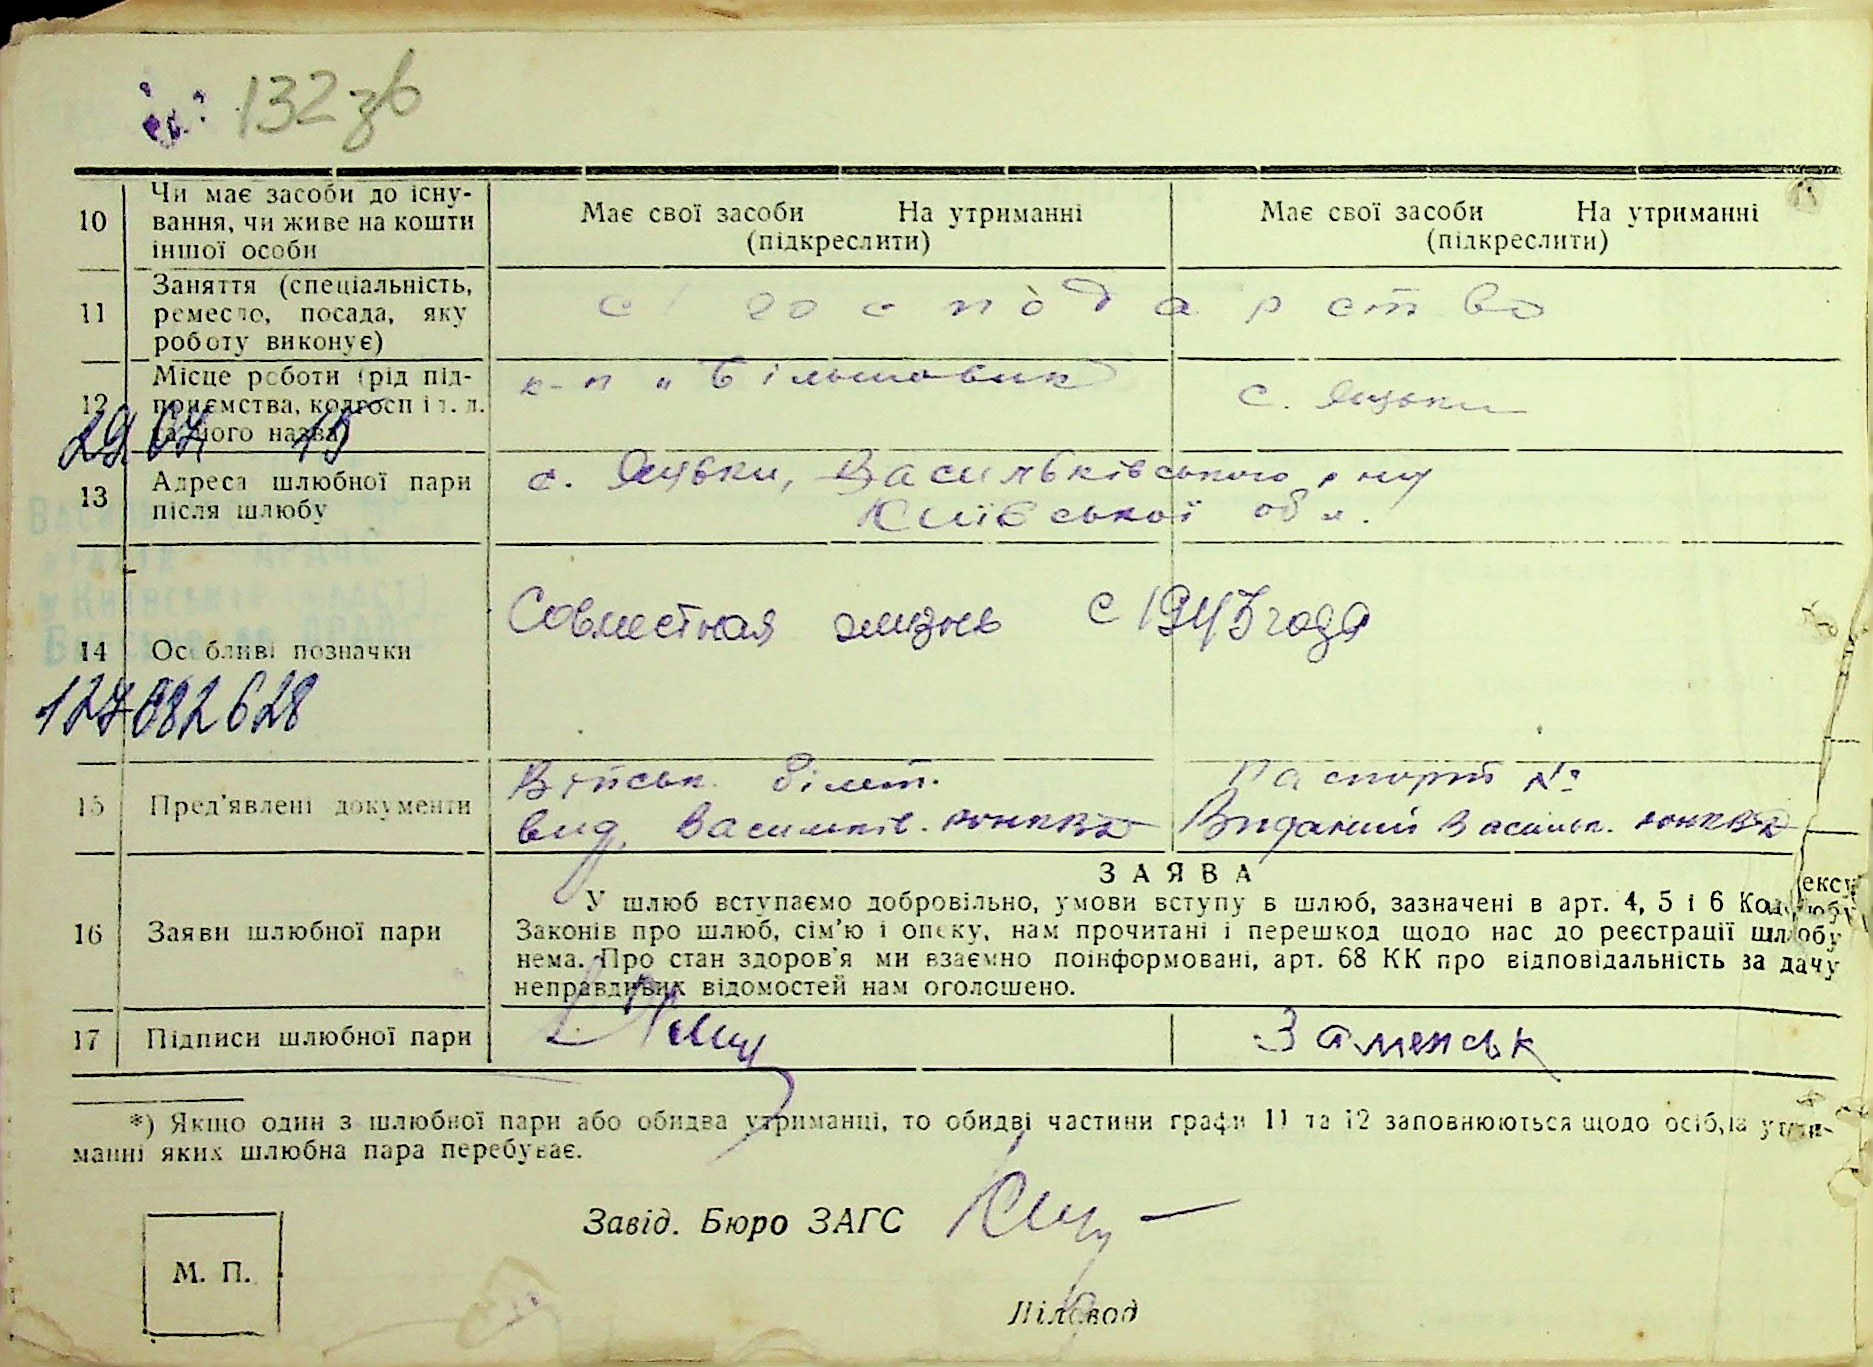 132 зв
10 Чи має засоби до існу-
вання, чи живе на кошти
іншої особи
Має свої засоби На утриманні
(підкреслити)
Має свої засоби На утриманні
(підкреслити)
11 Заняття (спеціальність,
ремесло, посада, яку
роботу виконує)
с/господарство
12 Місце роботи (рід під-
приємства, колгосп і т. д.
та його назва)
к-п "Більшовик"
с. Яцьки
29 07 15
13 Адреса шлюбної пари
після шлюбу
с. Яцьки, Васильківського р-ну
Київської обл.
14 Особливі позначки
Совместная жизнь с 1945 года
127682628
15 Пред'явлені документи
Військ. білет.
вид. Васильків.
Паспорт №
Виданий Васильк.
16 Заяви шлюбної пари
ЗАЯВА
У шлюб вступаємо добровільно, умови вступу в шлюб, зазначені в арт. 4, 5 і 6
Законів про шлюб, сім'ю і опеку, нам прочитані і перешкод щодо нас до реєстрації шлюбу
нема. Про стан здоров'я ми взаємно поінформовані, арт. 68 КК про відповідальність за дачу
неправдивих відомостей нам оголошено.
17 Підписи шлюбної пари
*) Якщо один з шлюбної пари або обидва утриманці, то обидві частини графи 11 та 12 заповнюються щодо осіб, на утри-
манні яких шлюбна пара перебуває.
Завід. Бюро ЗАГС
М. П.
Діловод